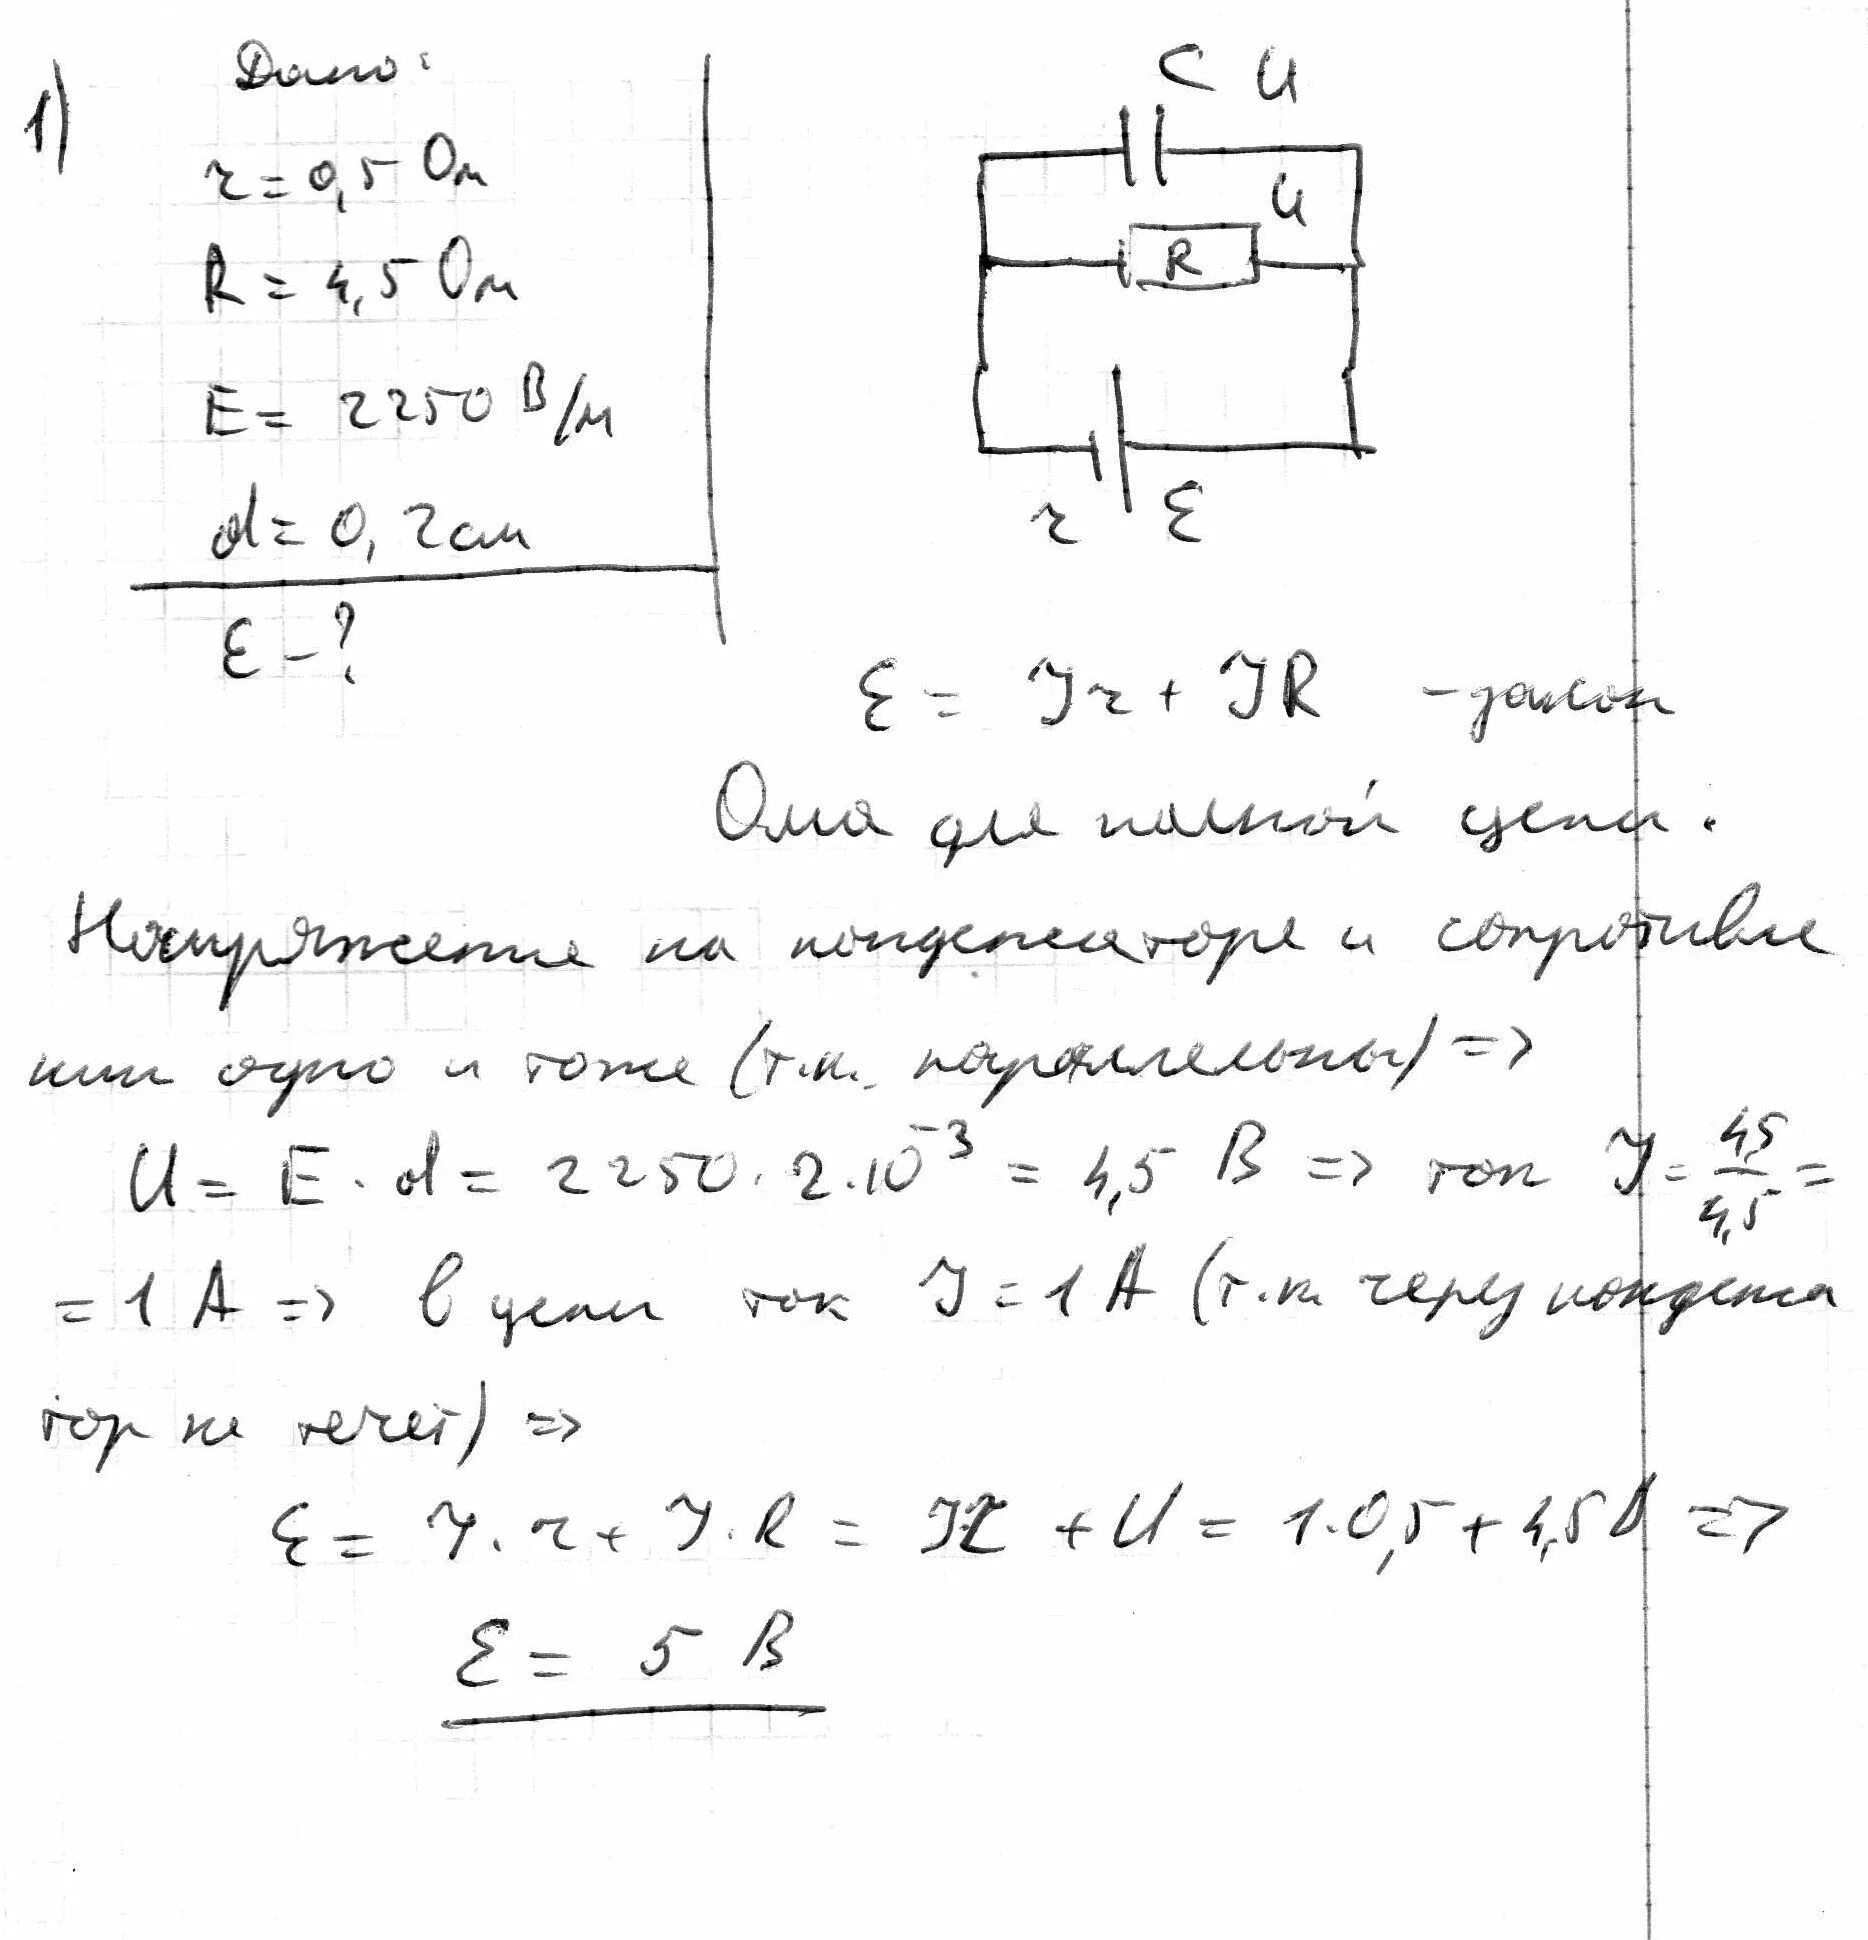 1)
Дано:
r = 0,5 Ом
R = 4,5 Ом
E = 2250 В/м
d = 0,2 см
ℰ - ?
C U
U
R
r ℰ
ℰ = Ir + IR - закон
Ома для полной цепи.
Напряжение на конденсаторе и сопротивле
нии одно и тоже (т.к. параллельны) =>
U = E · d = 2250 · 2 · 10⁻³ = 4,5 В => ток I = 4,5/4,5 =
= 1 А => в цепи ток I = 1 А (т.к. через конденса
тор не течет) =>
ℰ = I · r + I · R = Ir + U = 1 · 0,5 + 4,5 В =>
ℰ = 5 В